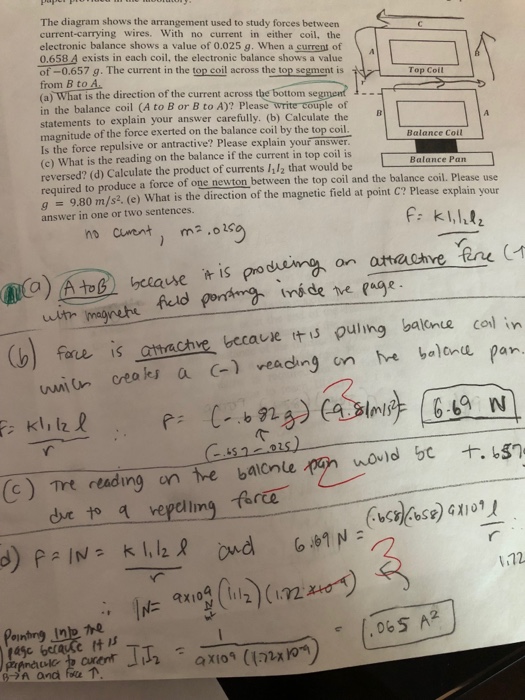 The diagram shows the arrangement used to study forces between
current-carrying wires. With no current in either coil, the
electronic balance shows a value of 0.025 g. When a current of
0.658 A exists in each coil, the electronic balance shows a value
of −0.657 g. The current in the top coil across the top segment is
from B to A.
(a) What is the direction of the current across the bottom segment
in the balance coil (A to B or B to A)? Please write couple of
statements to explain your answer carefully. (b) Calculate the
magnitude of the force exerted on the balance coil by the top coil.
Is the force repulsive or antractive? Please explain your answer.
(c) What is the reading on the balance if the current in top coil is
reversed? (d) Calculate the product of currents I₁I₂ that would be
required to produce a force of one newton between the top coil and the balance coil. Please use
g = 9.80 m/s². (e) What is the direction of the magnetic field at point C? Please explain your
answer in one or two sentences.
C
A
B
Top Coil
r
B
A
Balance Coil
Balance Pan
F= kI₁I₂l
r
no current, m= .025g
(a) A to B because it is producing an attractive force
with magnetic field pointing inside the page.
(b) force is attractive because it is puling balance coil in
which creates a (-) reading on the balance pan.
F= kI₁I₂l
r
∴ F= (-.682g) (9.81m/s²)= 6.69 N
3
(-.657-.025)
(c) The reading on the balance pan would be +.657
due to a repelling force
2
d) F=1N= kI₁I₂l
r
and 6.69N = (.658)(.658)9x10⁹ l
r
3
1.72
∴ 1N= 9x10⁹ (I₁I₂)(1.72x10⁻⁹)
I₁I₂ = 1
9x10⁹ (1.72x10⁻⁹)
= .065 A²
Pointing into the
page because it is
perpendicular to current
B→A and force ↑.